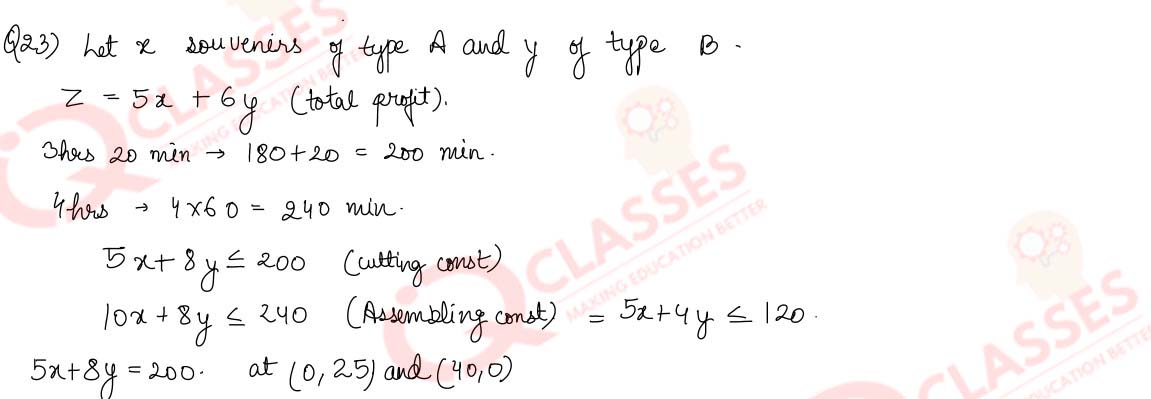 Q23) Let x souvenirs of type A and y of type B.
Z = 5x + 6y (total profit).
3hrs 20 min → 180+20 = 200 min.
4hrs → 4×60 = 240 min.
5x + 8y ≤ 200 (cutting const)
10x + 8y ≤ 240 (Assembling const) = 5x+4y ≤ 120.
5x+8y = 200. at (0,25) and (40,0)
CLASSES
MAKING EDUCATION BETTER
CLASSES
MAKING EDUCATION BETTER
CLASSES